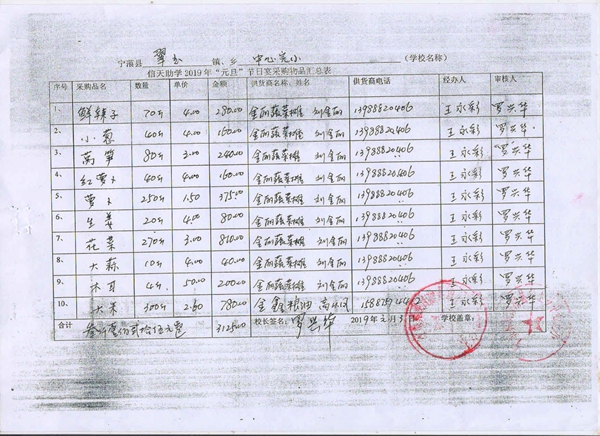 宁蒗县 翠玉 镇、乡 中心完小 (学校名称)
信天助学2019年“元旦”节日宴采购物品汇总表
序号 采购品名 数量 单价 金额 供货商名称、姓名 供货商电话 经办人 审核人
1、 鲜辣子 70斤 4.00 280.00 金丽蔬菜摊 刘金丽 13988820406 王永彩 罗兴华
2、 小葱 40斤 4.00 160.00 金丽蔬菜摊 刘金丽 13988820406 王永彩 罗兴华
3、 莴笋 80斤 3.00 240.00 金丽蔬菜摊 刘金丽 13988820406 王永彩 罗兴华
4、 红萝卜 40斤 4.00 160.00 金丽蔬菜摊 刘金丽 13988820406 王永彩 罗兴华
5、 萝卜 250斤 1.50 375.00 金丽蔬菜摊 刘金丽 13988820406 王永彩 罗兴华
6、 生姜 20斤 4.00 80.00 金丽蔬菜摊 刘金丽 13988820406 王永彩 罗兴华
7、 花菜 270斤 3.00 810.00 金丽蔬菜摊 刘金丽 13988820406 王永彩 罗兴华
8、 大蒜 10斤 4.00 40.00 金丽蔬菜摊 刘金丽 13988820406 王永彩 罗兴华
9、 木耳 4斤 50.00 200.00 金丽蔬菜摊 刘金丽 13988820406 王永彩 罗兴华
10、 大米 300斤 2.60 780.00 金鑫粮油 王永彩 罗兴华
合计 3125.00 校长签名: 罗兴华 2019年元月3日 学校盖章: